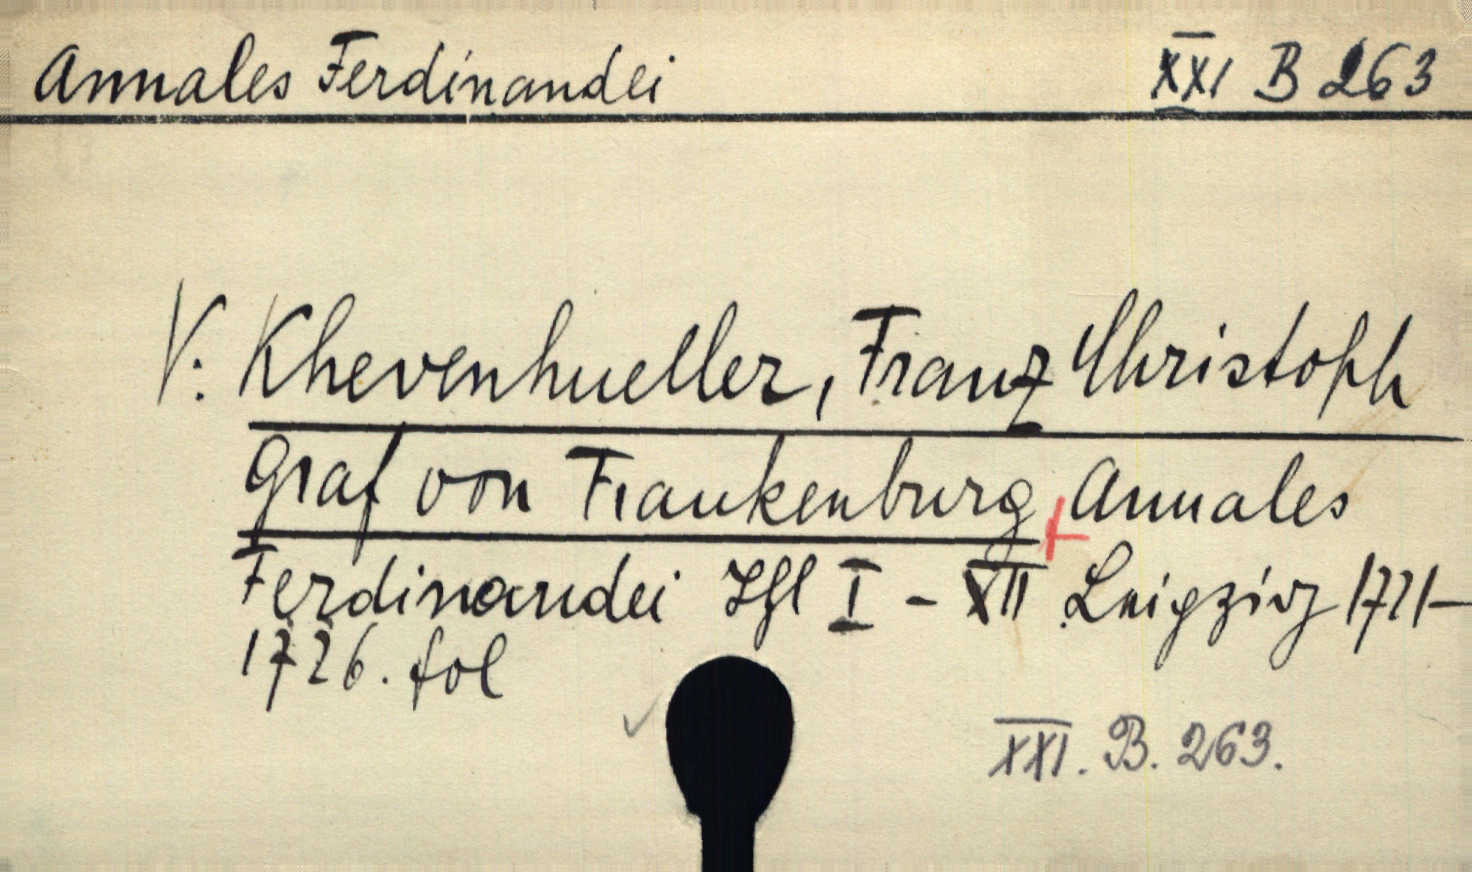 Annales Ferdinandei XXI B 263
V. Khevenhueller, Franz Christoph
Graf von Frankenburg, Annales
Ferdinandei Tfl I - XII Leipzig 1721-
1726. fol
XXI. B. 263.